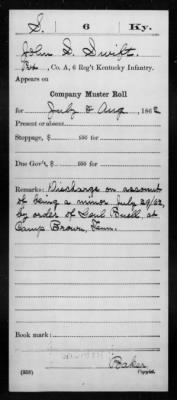 S. 6 Ky.
John S. Swift.
Pvt, Co. A, 6 Reg't Kentucky Infantry.
Appears on
Company Muster Roll
for July & Aug, 1862
Present or absent
Stoppage, $ 100 for
Due Gov't, $ 100 for
Remarks: Discharge on account
of being a minor July 29/62,
by order of Genl Buell, at
Camp Brown, Tenn.
Book mark:
Baker
(358) Copyist.